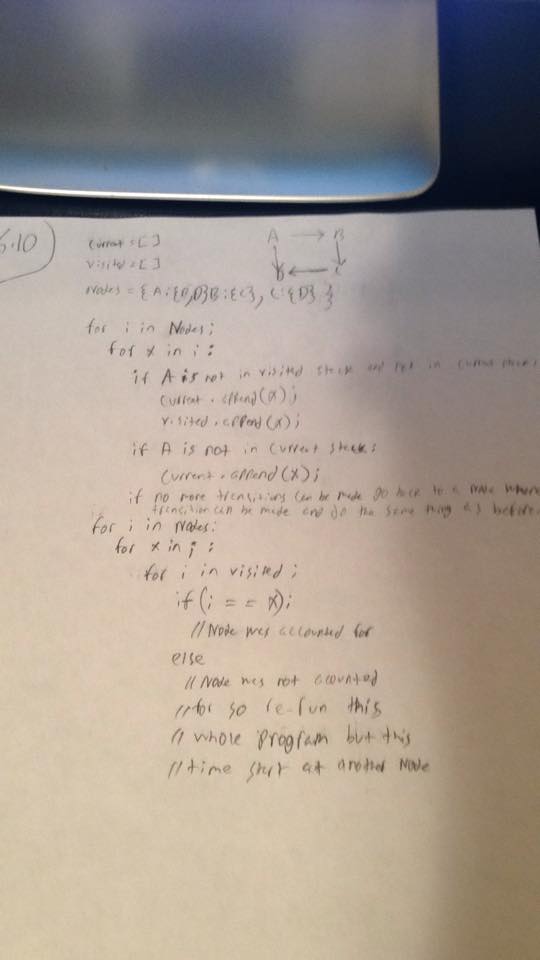 5.10)
current = [ ]
visited = [ ]
A → B
D ← C
Nodes = {A:{B,D}B:{C}, C:{D} }
for i in Nodes:
for x in i :
if A is not in visited stack and not in current stack:
current.append(x);
visited.append(x);
if A is not in current stack:
current.append(x);
if no more transitions can be made go back to a node where
transition can be made and do the same thing as before.
for i in Nodes:
for x in i :
for i in visited ;
if(i == x);
//Node was accounted for
else
//Node was not acounted
//for so re-run this
// whole program but this
//time start at another Node